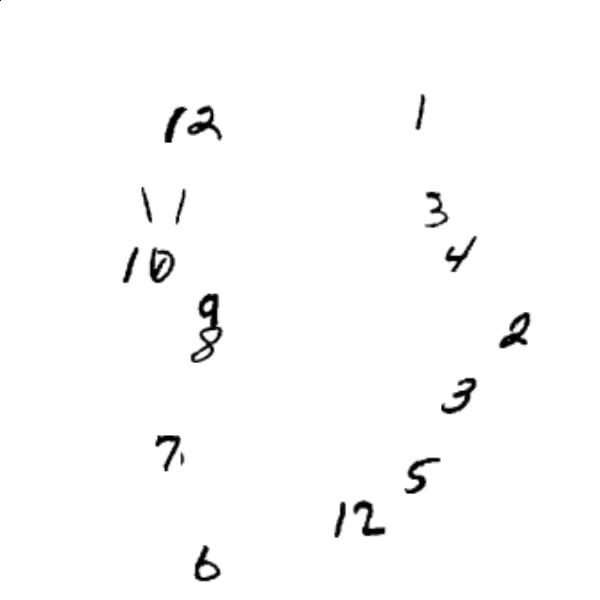 12 1
11 3
10 4
9
8 2
3
7 5
12
6